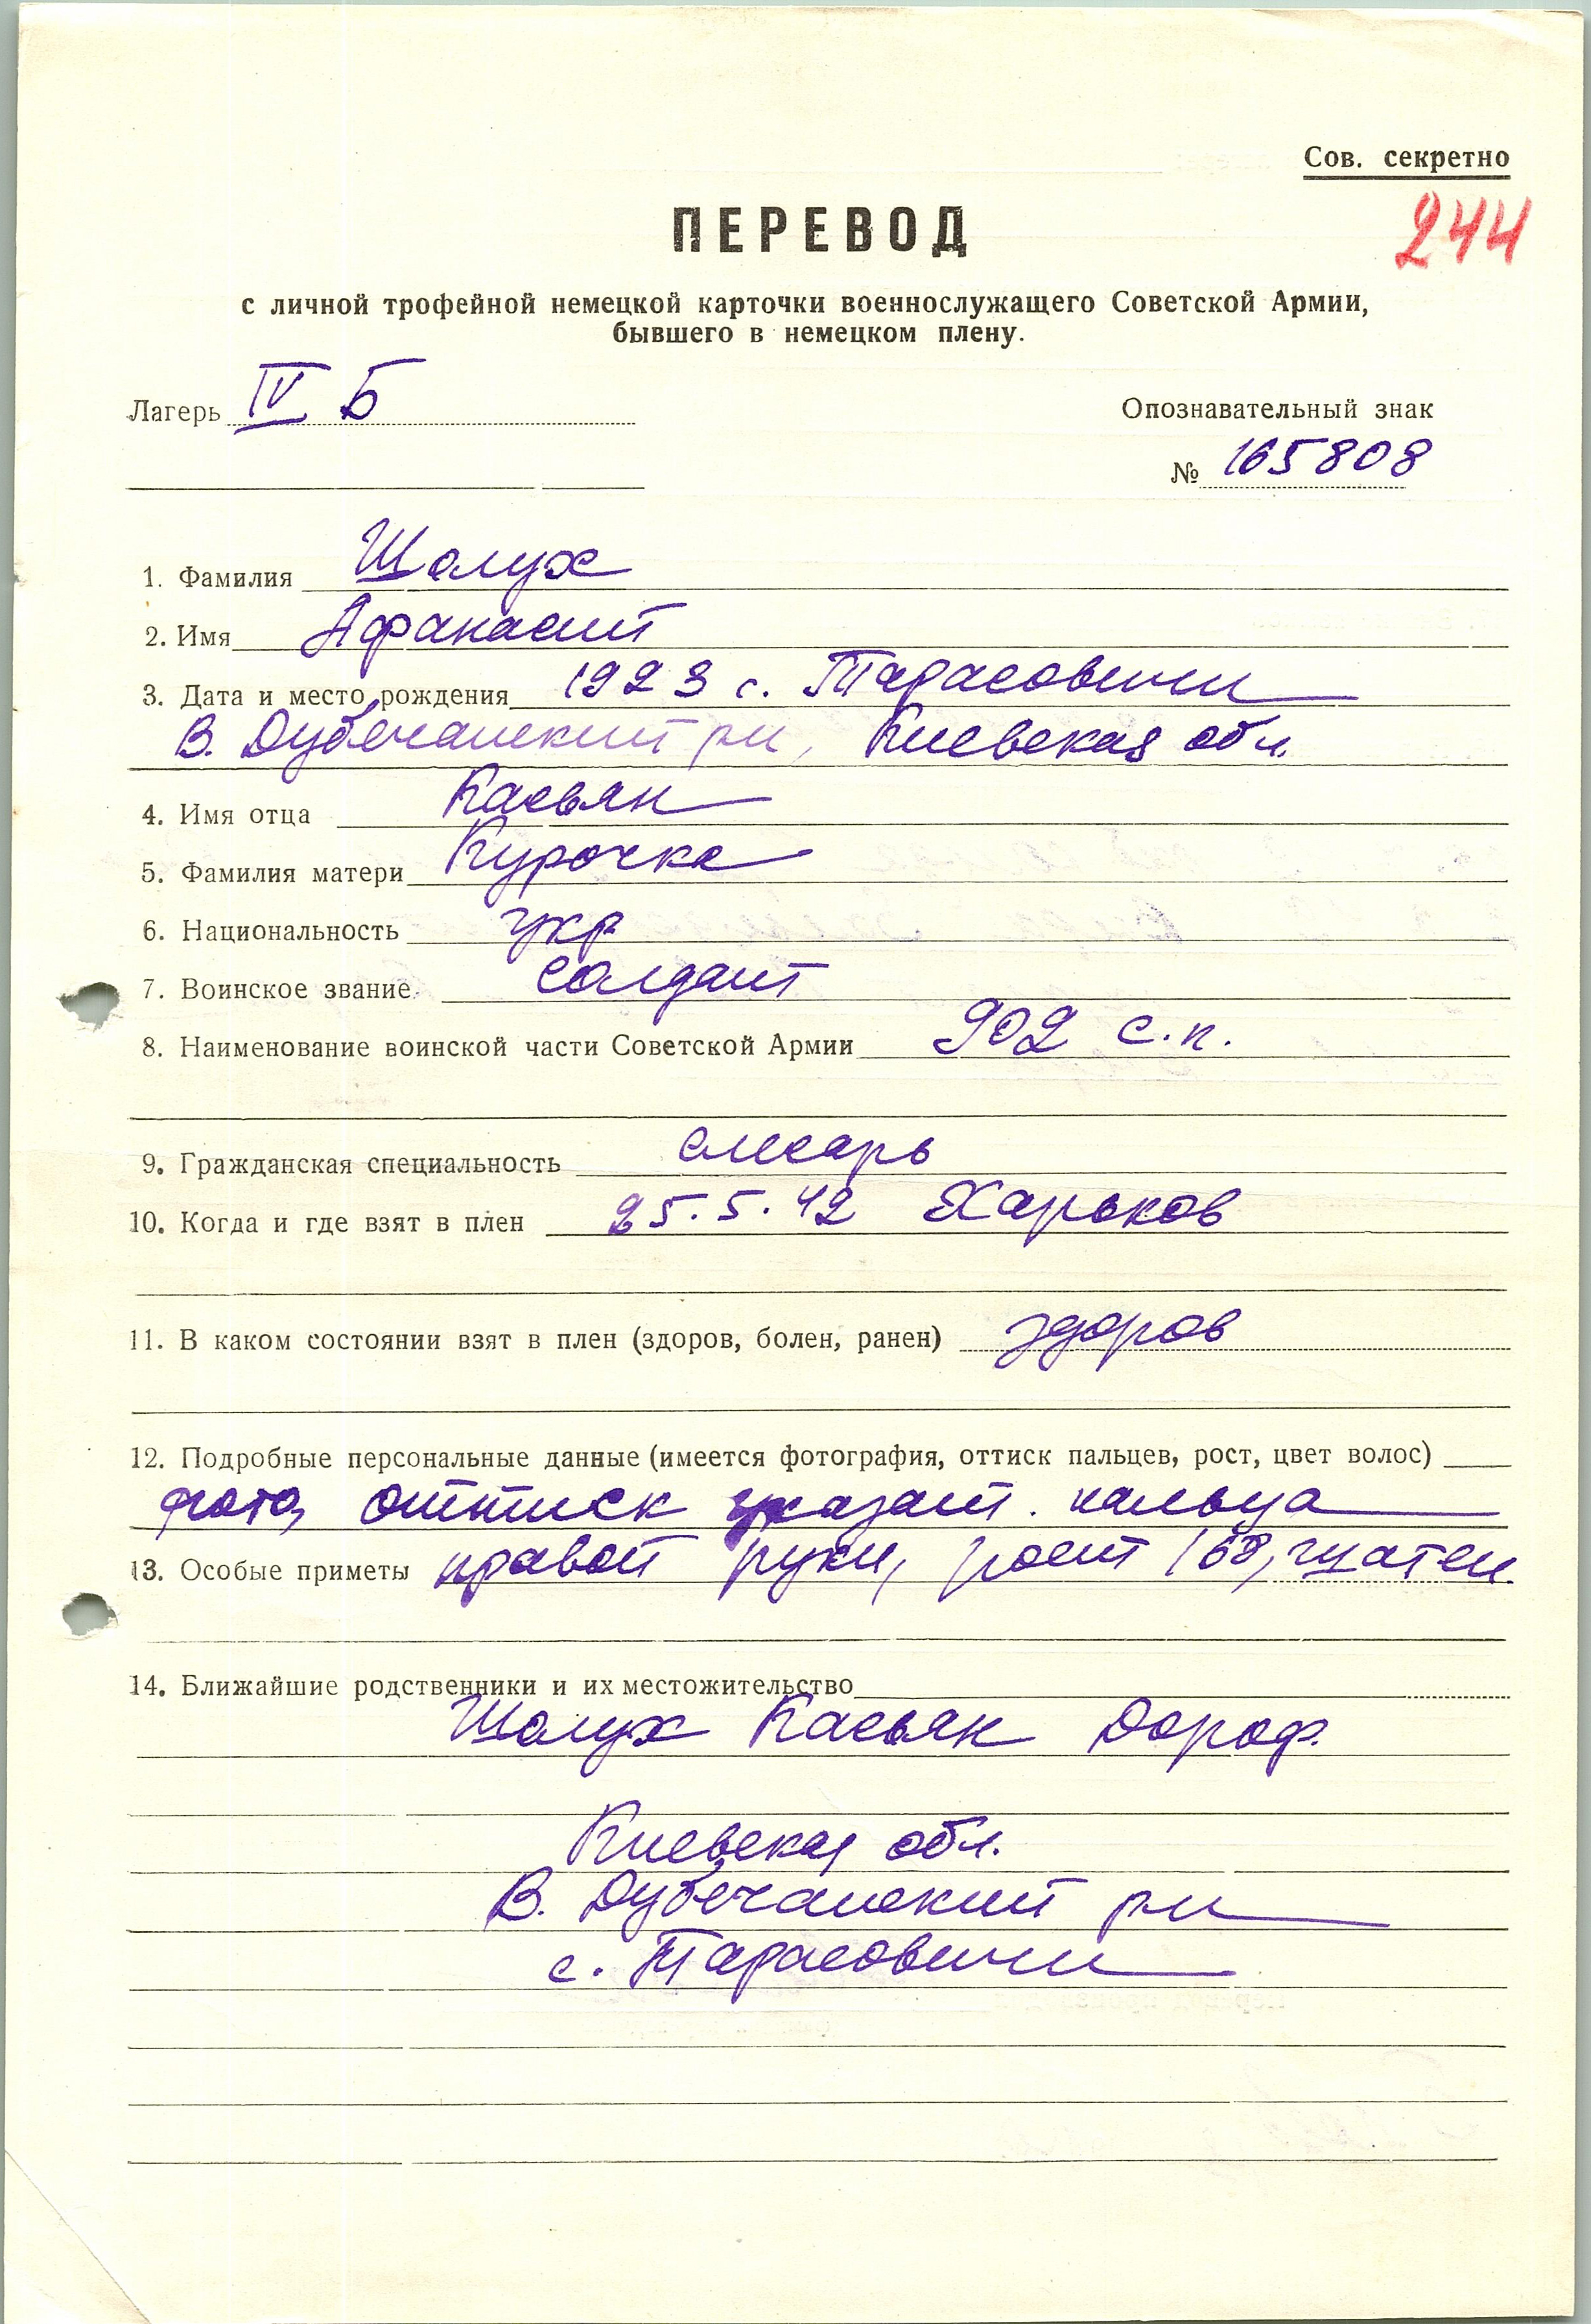 Сов. секретно
ПЕРЕВОД
244
с личной трофейной немецкой карточки военнослужащего Советской Армии,
бывшего в немецком плену.
Лагерь IV Б
Опознавательный знак
№ 165808
1. Фамилия Шолух
2. Имя Афанасий
3. Дата и место рождения 1923 с. Тарасовичи
В. Дубечанский рн, Киевская обл.
4. Имя отца Касьян
5. Фамилия матери Курочка
6. Национальность укр
7. Воинское звание солдат
8. Наименование воинской части Советской Армии 902 с.п.
9. Гражданская специальность слесарь
10. Когда и где взят в плен 25.5.42 Харьков
11. В каком состоянии взят в плен (здоров, болен, ранен) здоров
12. Подробные персональные данные (имеется фотография, оттиск пальцев, рост, цвет волос)
фото, оттиск указат. пальца
13. Особые приметы правой руки, рост 168, шатен
14. Ближайшие родственники и их местожительство
Шолух Касьян Дороф.
Киевская обл.
В. Дубечанский рн
с. Тарасовичи